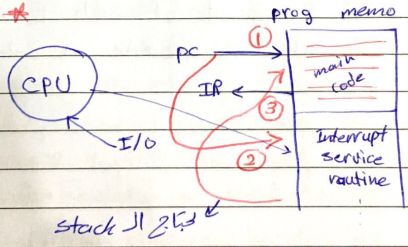 prog memo
PC ①
CPU
main
code
IR
③
I/O
②
Interrupt
service
routine
نحتاج الـ stack